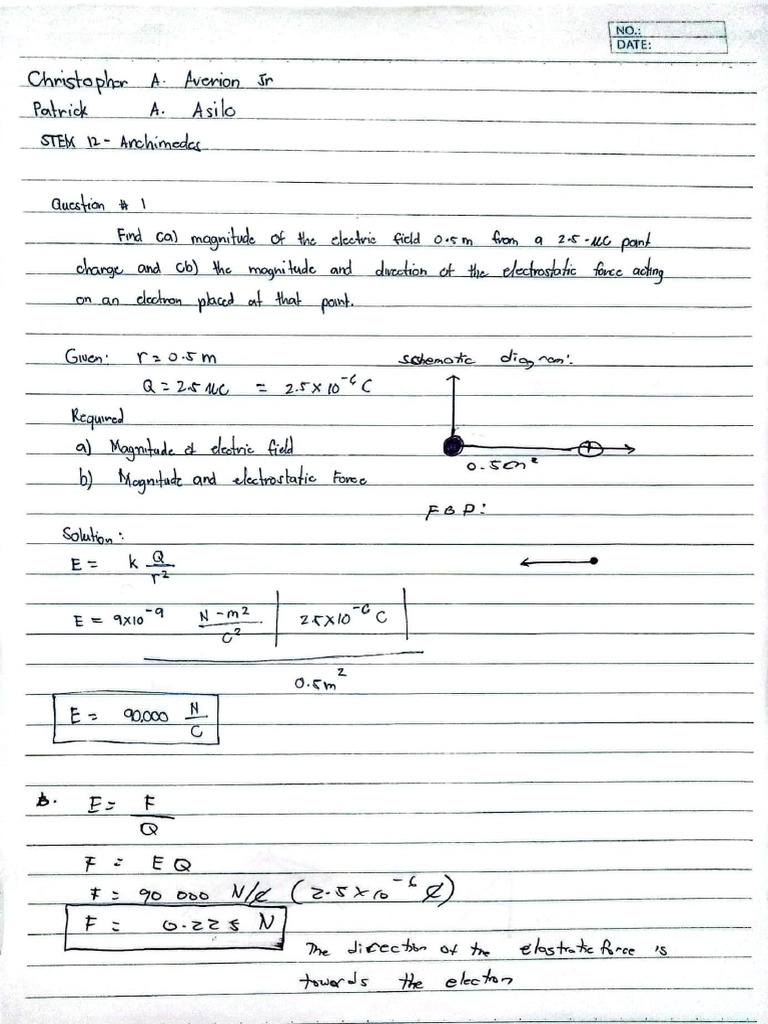 NO.:
DATE:
Christopher A. Averion Jr
Patrick A. Asilo
STEM 12 - Archimedes
Question # 1
Find (a) magnitude of the electric field 0.5 m from a 2.5-μC point
charge and (b) the magnitude and direction of the electrostatic force acting
on an electron placed at that point.
Given: r = 0.5 m schematic diagram:
Q = 2.5 μC = 2.5 x 10⁻⁶ C
Required
a) Magnitude of electric field
0.5m²
b) Magnitude and electrostatic Force
FBD:
Solution:
E = k Q/r²
E = 9x10⁻⁹ N-m²/C² | 2.5x10⁻⁶ C |
0.5m²
E = 90,000 N/C
b. E = F/Q
F = EQ
F = 90 000 N/C (2.5 x 10⁻⁶ C)
F = 0.225 N
The direction of the elastratic force is
towards the electron